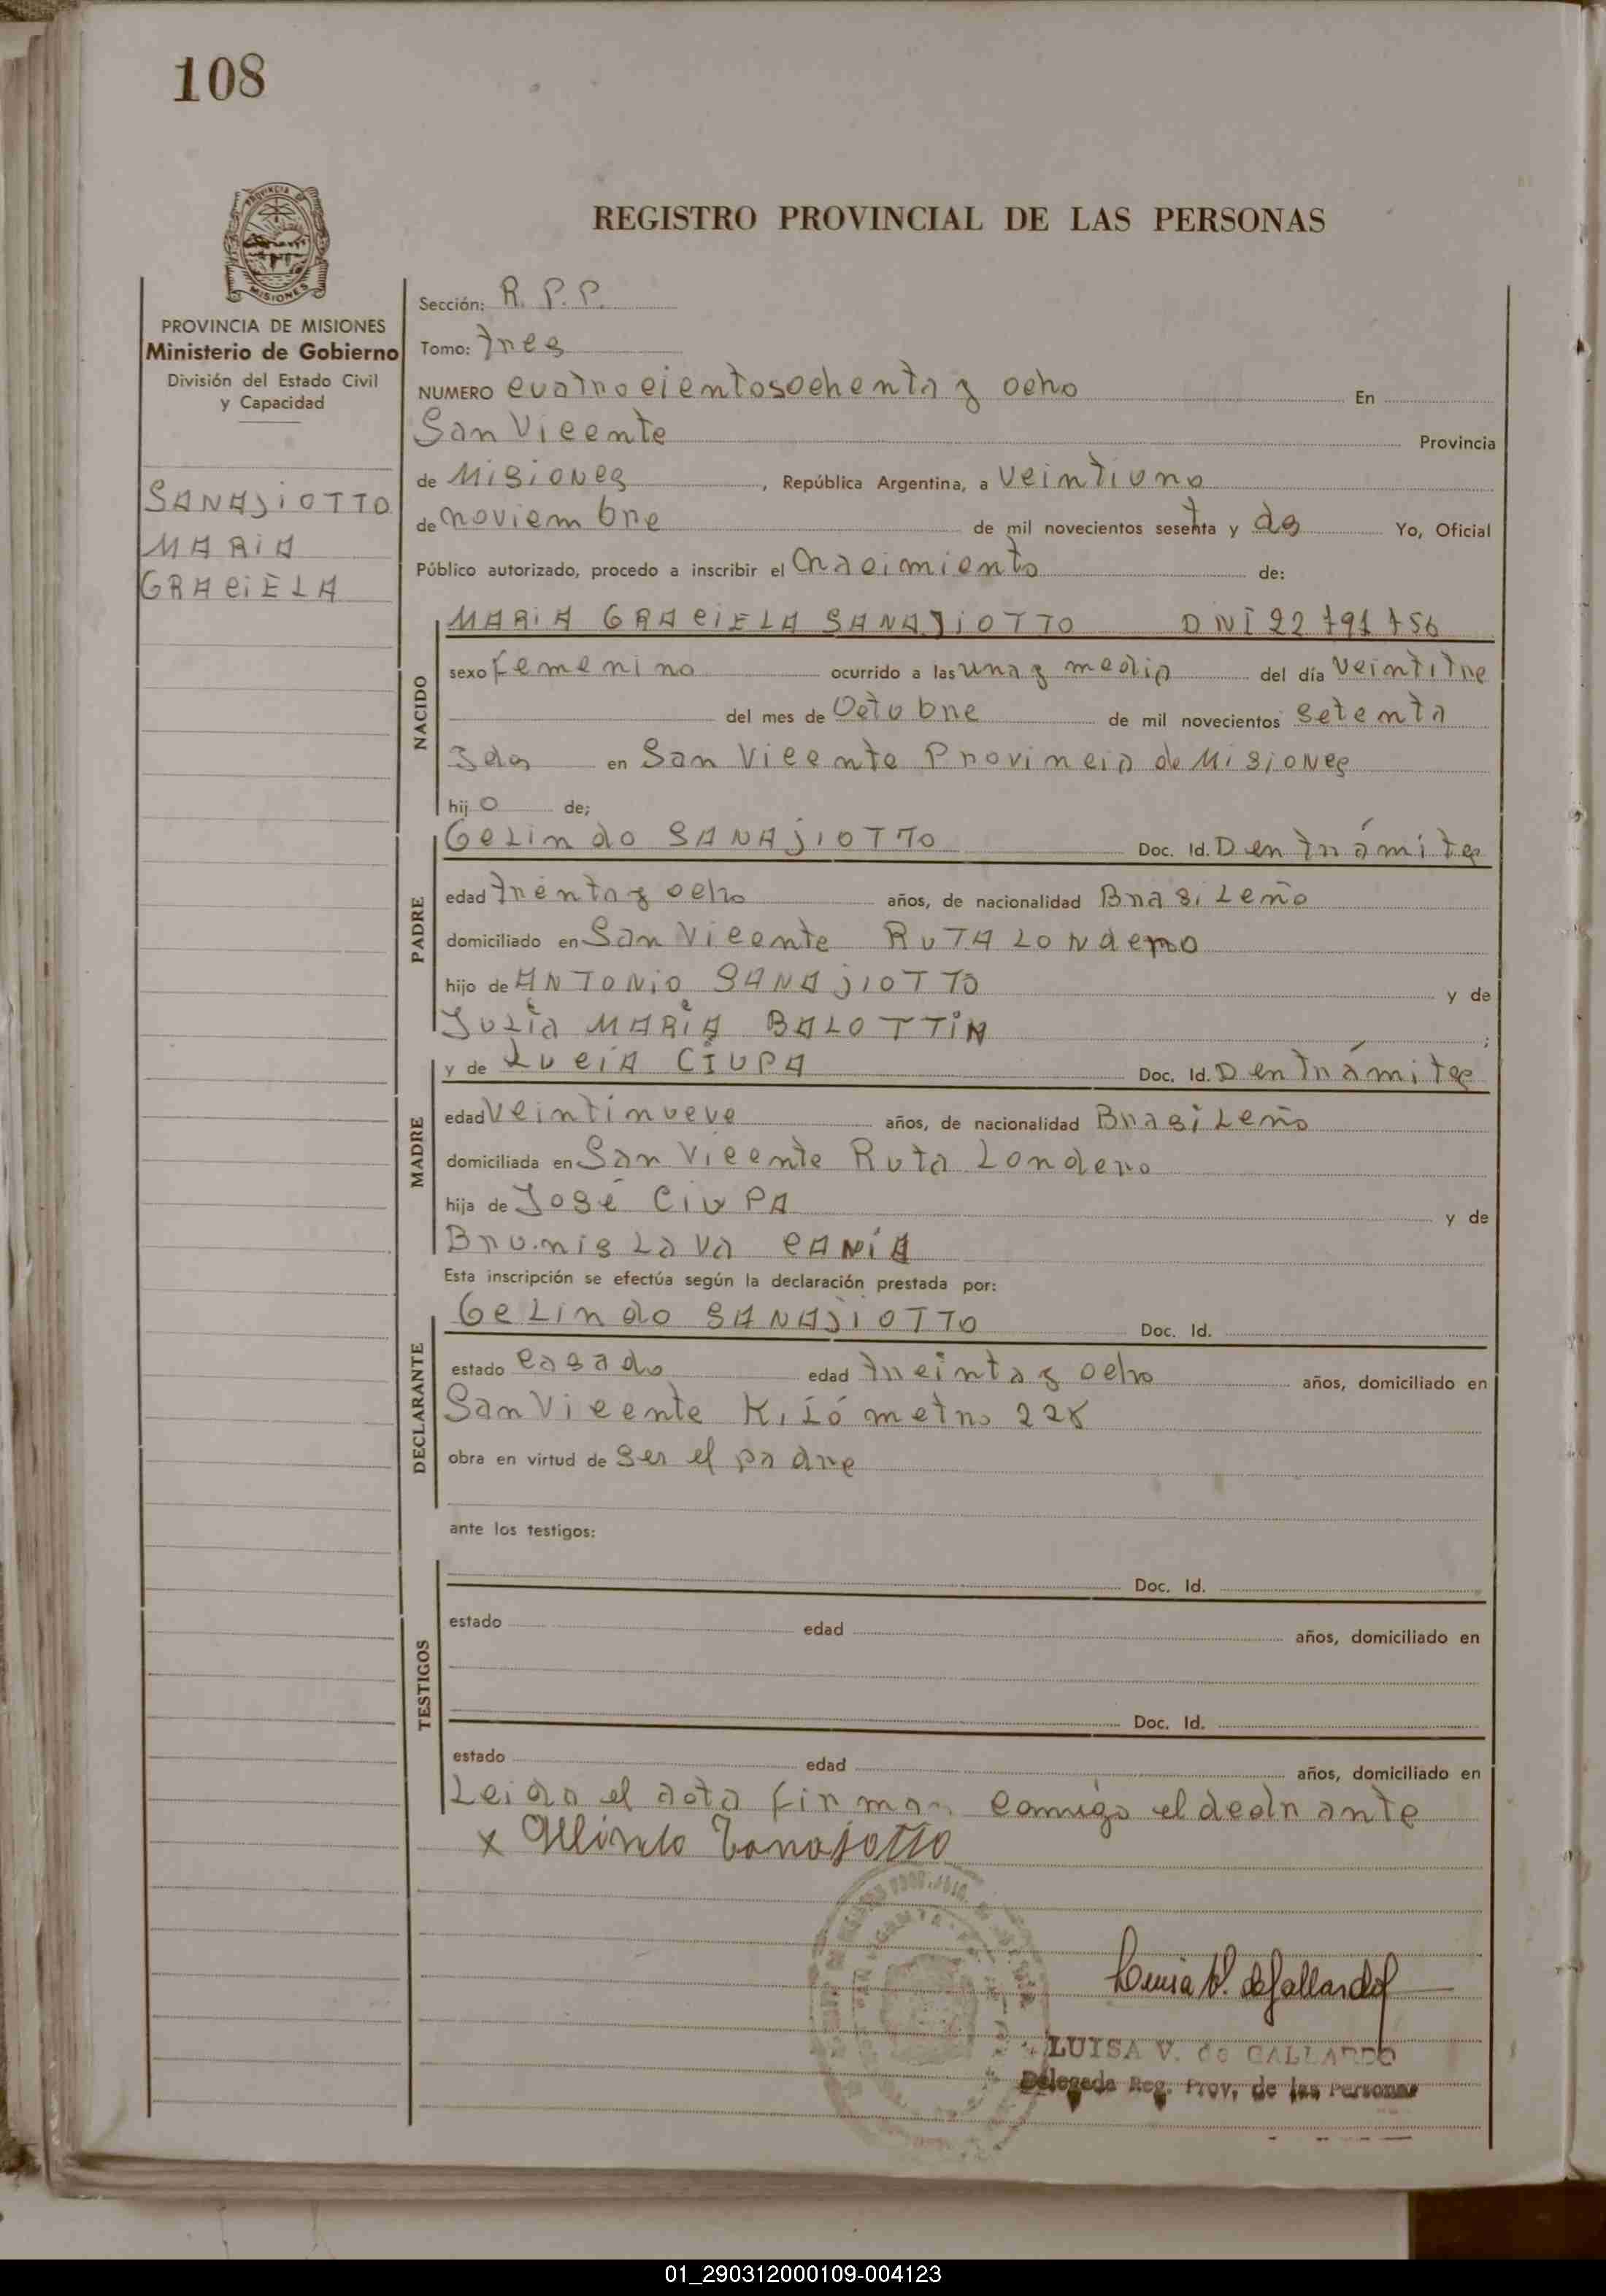 108
PROVINCIA
MISIONES
REGISTRO PROVINCIAL DE LAS PERSONAS
PROVINCIA DE MISIONES
Ministerio de Gobierno
División del Estado Civil
y Capacidad
SANAJIOTTO
MARIA
GRACIELA
Sección: R. P. P.
Tomo: tres
NUMERO cuatrocientosochenta y ocho En
San Vicente Provincia
de Misiones, República Argentina, a veintiuno
de noviembre de mil novecientos setenta y dos Yo, Oficial
Público autorizado, procedo a inscribir el Nacimiento de:
NACIDO
MARIA GRACIELA SANAJIOTTO DNI 22 791 756
sexo femenino ocurrido a las una y media del día veintitre
del mes de Octubre de mil novecientos setenta
y dos en San Vicente Provincia de Misiones
hijo de;
PADRE
Gelindo SANAJIOTTO Doc. Id. D en trámite
edad trenta y ocho años, de nacionalidad Brasileño
domiciliado en San Vicente RUTA LONdero
hijo de ANTONIO SANAJIOTTO y de
Julia MARIA BALOTTIN ;
MADRE
y de Lucia CIUPA Doc. Id. D en trámite
edad veintinueve años, de nacionalidad Brasileño
domiciliada en San Vicente Ruta Londero
hija de José CIUPA y de
Brunislava CANIA
Esta inscripción se efectúa según la declaración prestada por:
DECLARANTE
Gelindo SANAJIOTTO Doc. Id.
estado casado edad treinta y ocho años, domiciliado en
San Vicente Kilómetro 228
obra en virtud de ser el padre
ante los testigos:
TESTIGOS
Doc. Id.
estado edad años, domiciliado en
Doc. Id.
estado edad años, domiciliado en
Leida el acta firman comigo el declrante
x
Luisa V. de Gallardo
LUISA V. de GALLARDO
Delegada Reg. Prov. de las Personas
01_290312000109-004123